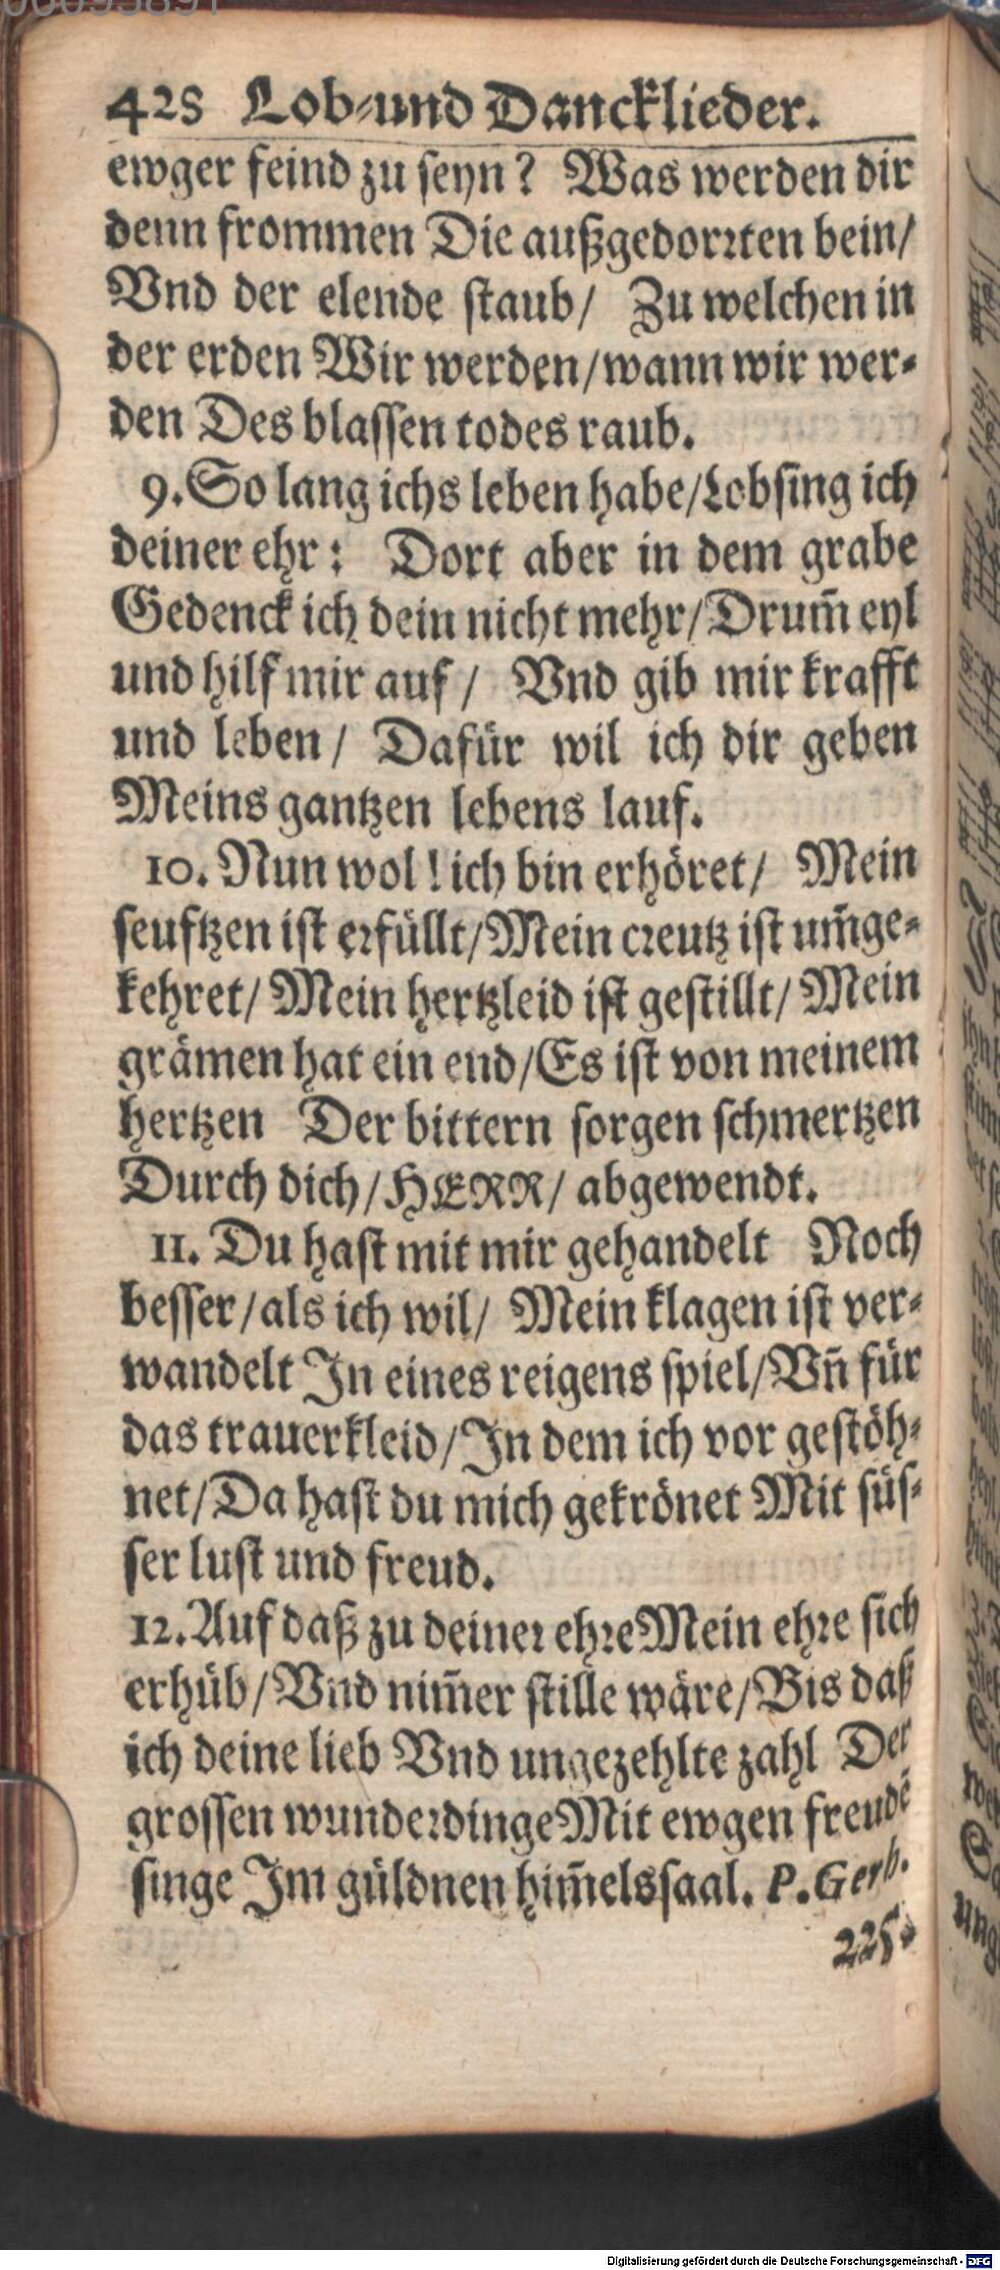 428 Lob-und Dancklieder.
ewger feind zu seyn? Was werden dir
denn frommen Die außgedorrten bein/
Vnd der elende staub/ Zu welchen in
der erden Wir werden/wann wir wer-
den Des blassen todes raub.
9. So lang ichs leben habe/Lobsing ich
deiner ehr: Dort aber in dem grabe
Gedenck ich dein nicht mehr/Drum̄ eyl
und hilf mir auf/ Vnd gib mir krafft
und leben/ Dafür wil ich dir geben
Meins gantzen lebens lauf.
10. Nun wol! ich bin erhöret/ Mein
seuftzen ist erfüllt/Mein creutz ist um̄ge-
kehret/Mein hertzleid ist gestillt/Mein
grämen hat ein end/Es ist von meinem
hertzen Der bittern sorgen schmertzen
Durch dich/HERR/ abgewendt.
11. Du hast mit mir gehandelt Noch
besser/als ich wil/ Mein klagen ist ver-
wandelt In eines reigens spiel/Vn̄ für
das trauerkleid/In dem ich vor gestöh-
net/Da hast du mich gekrönet Mit süs-
ser lust und freud.
12. Auf daß zu deiner ehre Mein ehre sich
erhüb/Vnd nim̄er stille wäre/Bis daß
ich deine lieb Vnd ungezehlte zahl Der
grossen wunderdinge Mit ewgen freudē
singe Im güldnen him̄elssaal. P. Gerh.
225.
Digitalisierung gefördert durch die Deutsche Forschungsgemeinschaft - DFG